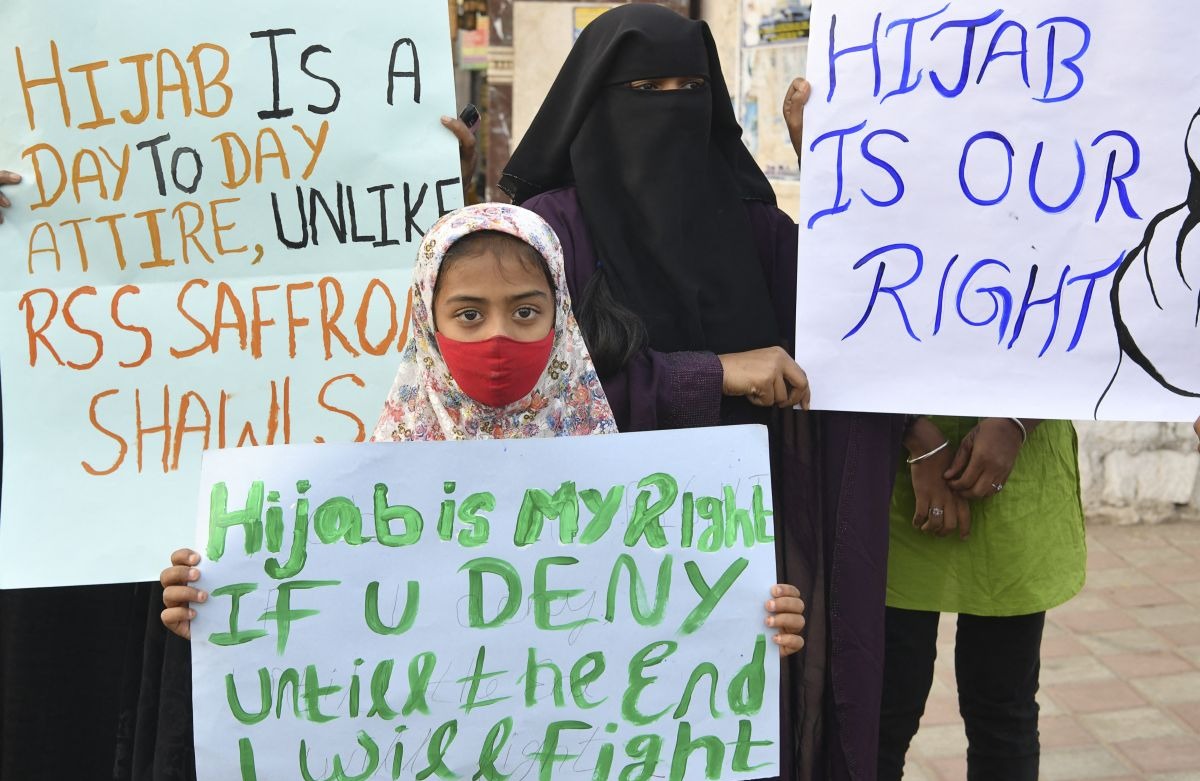 HIJAB IS A
DAY TO DAY
ATTIRE, UNLIKE
RSS SAFFRON
SHAWLS
HIJAB
IS OUR
RIGHT
Hijab is My Right
IF U DENY
Untill the End
I will Fight